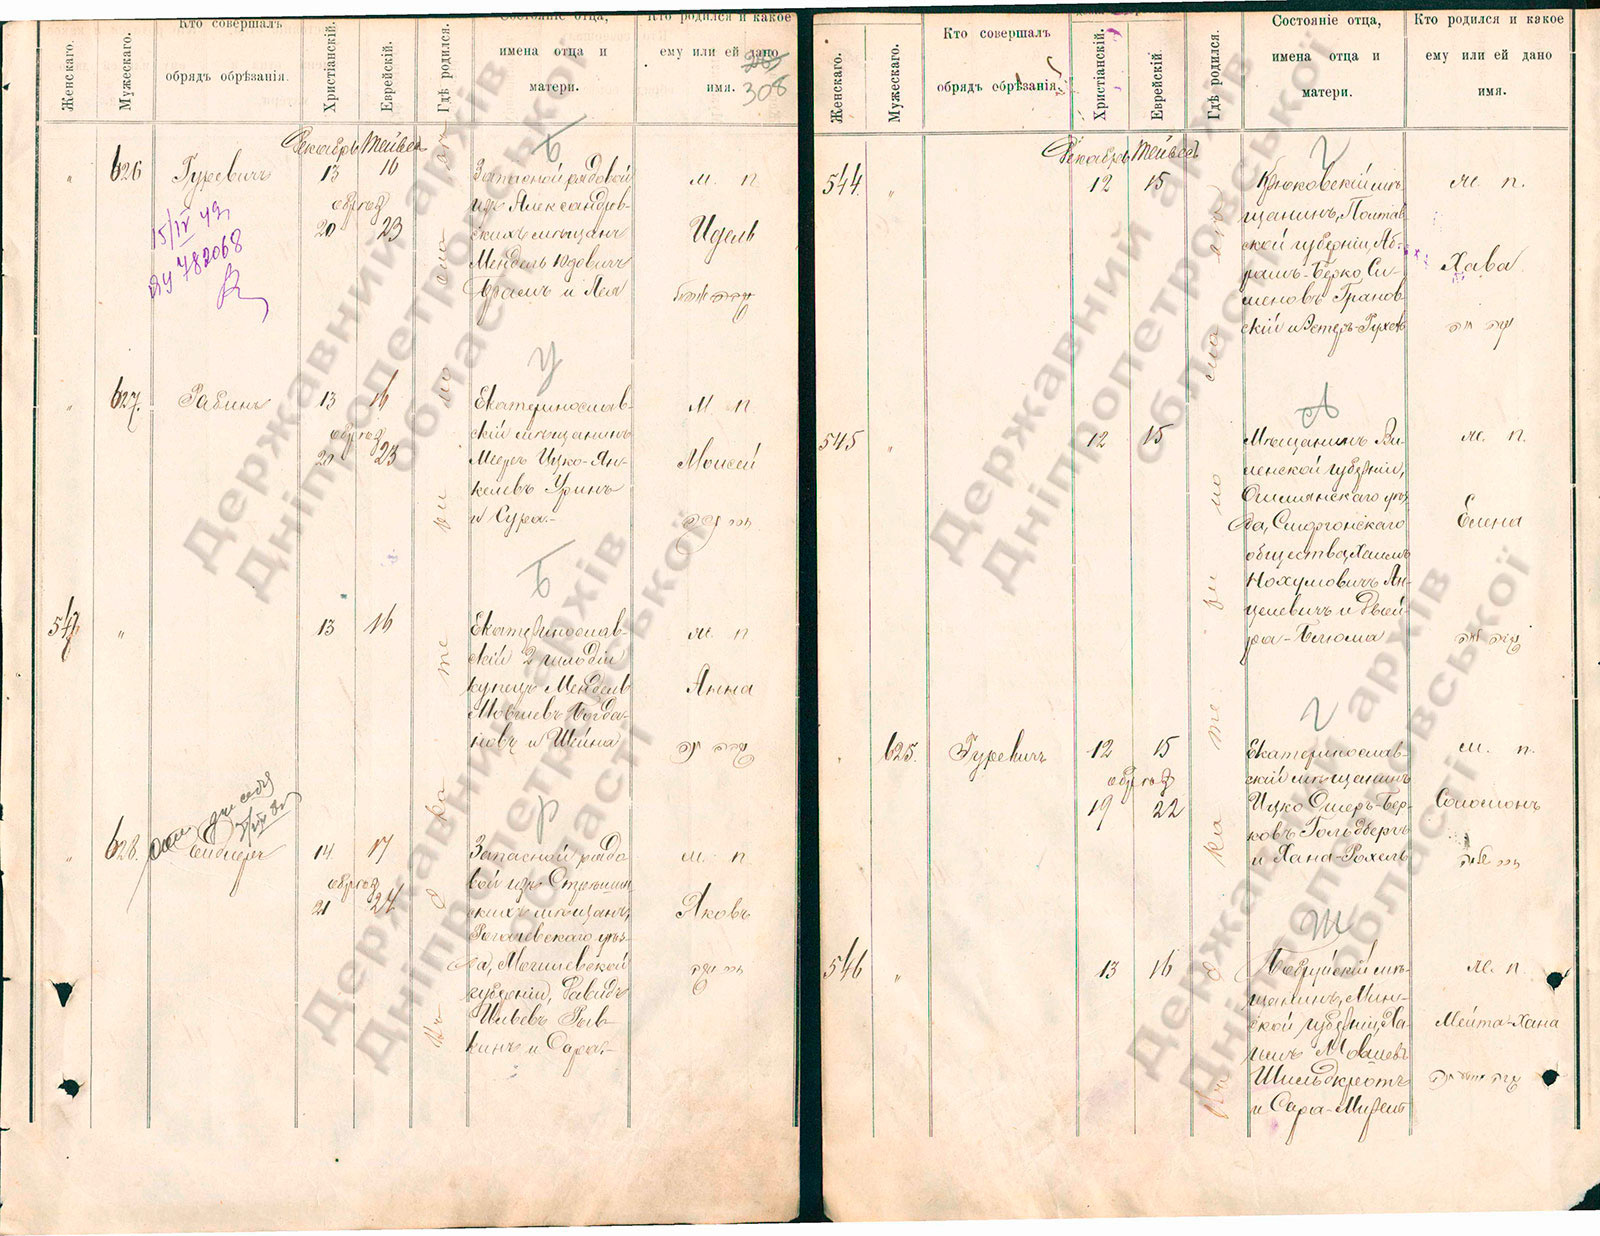 Женскаго.
Мужескаго.
Кто совершалъ
обрядъ обрѣзанія.
Христіанскій.
Еврейскій.
Гдѣ родился.
Состояніе отца,
имена отца и
матери.
Кто родился и какое
ему или ей дано
имя.
308
Декабрь Тейвес
626 Гуревичъ 13 16
обрѣз
20 23
15/IV 49
782068
Б
Запасной рядовой
изъ Александров-
скихъ мѣщанъ
Мендель Юдовичъ
и Лея
м. п.
Идель
627. Рабинъ 13 16
обрѣз
20 23
У
Екатеринослав-
скій мѣщанинъ
Мееръ Ицко-Ян-
келевъ Уринъ
и Сура.-
м. п.
Моисей
547 " 13 16
Б
Екатеринослав-
скій 2 гильдіи
купецъ Мендель
Мовшевъ Богда-
новъ и Шейна
ж. п.
Анна
628. 14 17
обрѣз
21 24
Р
Запасной рядо
вой изъ
скихъ мѣщанъ,
Рогачевскаго уѣз-
да, Могилевской
губерніи, Давидъ
Рыв-
кинъ и Сара.-
м. п.
Яковъ
Екатеринославѣ
Женскаго.
Мужескаго.
Кто совершалъ
обрядъ обрѣзанія.
Христіанскій.
Еврейскій.
Гдѣ родился.
Состояніе отца,
имена отца и
матери.
Кто родился и какое
ему или ей дано
имя.
Декабрь Тейвес
544 " 12 15
Г
Крюковскій мѣ-
щанинъ, Полтав
ской губерніи, Аб-
рамъ-Берко Си-
меновъ Гранов
скій и Эстеръ-Рухля
ж. п.
Хава
545 " 12 15
А
Мѣщанинъ Ви-
ленской губерніи,
Ошмянскаго уѣз
да, Сморгонскаго
общества Хаимъ
Нохумовичъ Ан-
целевичъ и Двей-
ра-Блюма
ж. п.
Елена
625. Гуревичъ 12 15
обрѣз
19 22
Г
Екатеринослав-
скій мѣщанинъ
Ицко Ошеръ-Бер-
ковъ Гольдбергъ
и Хана-Рохель
м. п.
Соломонъ
546 " 13 16
Ш
Бобруйскій мѣ-
щанинъ, Мин-
ской губерніи, Ха-
имъ Мовшевъ
Шильдкротъ
и Сара-
ж. п.
Мейта-Хана
Екатеринославѣ
Державний архів
Дніпропетровської
області